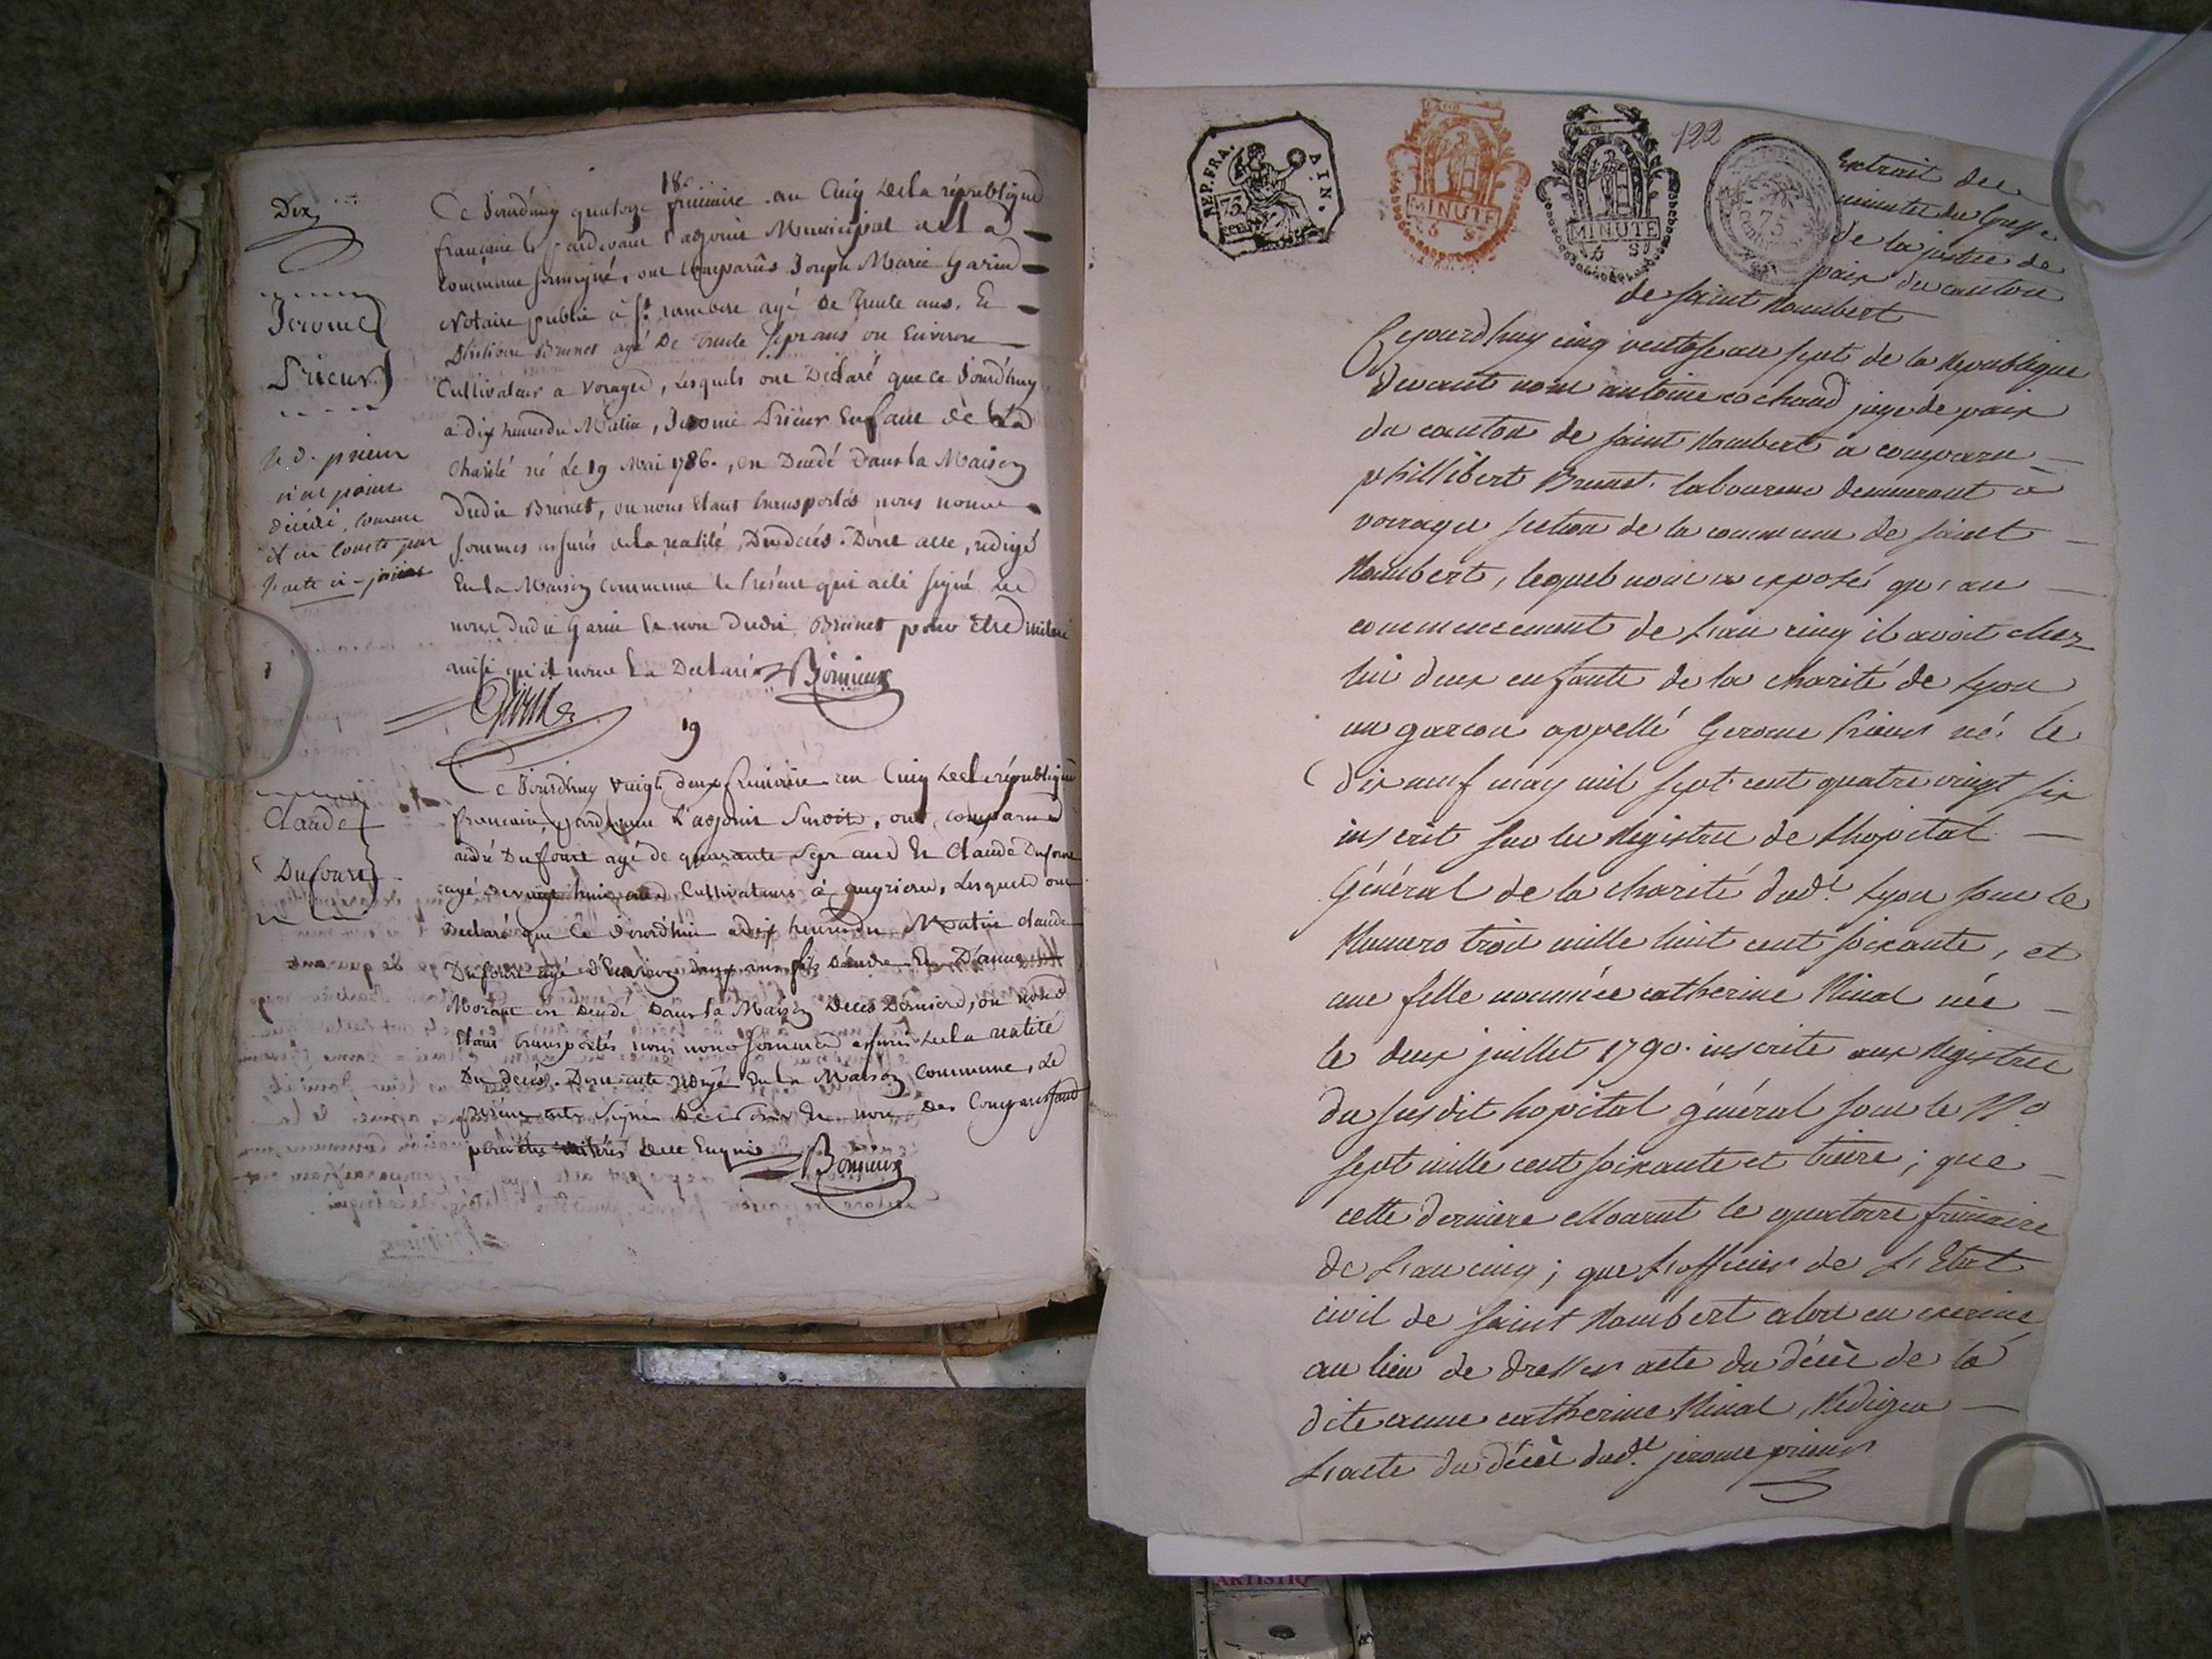 Dix
18.
Ce Jourdhuy quatorze frimaire an Cinq dela république
francaine pardevant l'agoint Municipal de la
commune soussigné, ont comparûs Joseph Marie Garin
Notaire public à St. rambert agé de Trente ans. Et
Philibert Brunet agé de Trente Sept ans ou Environ
Cultivateur a Vorages, Lesquels ont Déclaré que ce Jourdhuy
a dix heures du Matin, Jerome Prieur Enfant de La
Charité né Le 19 Mai 1786. , est Décédé Dans la Maison
Dudit Brunet, ou nous Etant transportés nous nous
sommes assurés dela réalité Du décès. Dont acte, rédigé
En la Maison Commune le Présent qui a été signé de
nous dudit Garin et non dudit Brunet pour être illitéré
ainsi qu'il nous l'a Déclaré
Bonieux
Garin
Jerome
Prieur
le d. prieur
n'est point
décédé, comme
il en conste par
l'acte ci-joint
19
Ce Jourdhuy vingt deux frimaire an Cinq dela république
francaise, pardevant l'agoint Susdit, ont comparus
andré Dufour agé de quarante Sept ans Et Claude Dufour
agé de vingt huit ans Cultivateurs à gugrieu, Lesquels ont
Declaré que Ce Jourdhui a dix heures du Matin Claude
Dufour agé d'Environ deux ans fils d'andré Et D'anne
Morant est Décédé Dans la Maison De ces Derniers, ou nous
Etant transportés nous nous sommes assurés dela réalité
Du décès. Dont acte rédigé En la Maison Commune, Le
présent acte Signé De Nous Et non des Comparissants
pour être illitérés de ce Enquis
Bonieux
Claude
Dufour
REP. FRA.
AIN.
75
cent.
MINUTE
6 S
MINUTE
S
122
75
Extrait des
minutes du Greffe
de la justice de
paix du canton
de saint Rambert
Cejourdhuy cinq ventose an sept de la Republique
devant nous antoine cochard juge de paix
du canton de saint Rambert a comparu
phillibert Brunet laboureur demeurant à
vorrages section de la commune de saint
Rambert, lequel nous a exposé qu'au
commencement de l'an cinq il avoit chez
lui deux enfants de la charité de Lyon
un garcon appellé Gerome Prieur né le
dix neuf may mil sept cent quatre vingt six
inscrit sur les Registres de l'hopital
Général de la charité dud.t Lyon sous le
Numero trois mille huit cent soixante, et
une fille nommée catherine Rinal née
le deux juillet 1790. inscrite aux Registres
du susdit hopital général sous le No.
sept mille cent soixante et treize ; que
cette derniere Mourut le quatorze frimaire
de l'an cinq ; que l'officier de l'Etat
civil de saint Rambert alors en exercice
au lieu de dresser acte du décès de la
dite anne catherine Rinal, Redigea
l'acte du décès dud.t jerome prieur
ARTISTIQ